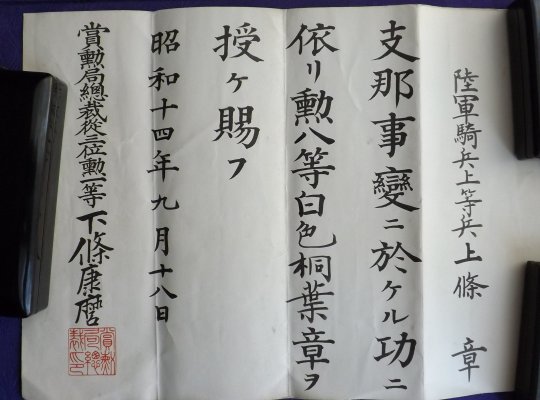 陸軍騎兵上等兵上條 章
支那事變ニ於ケル功ニ
依リ勲八等白色桐葉章ヲ
授ケ賜フ
昭和十四年九月十八日
賞勲局總裁從三位勲一等下條康麿
賞勲
局總
裁印